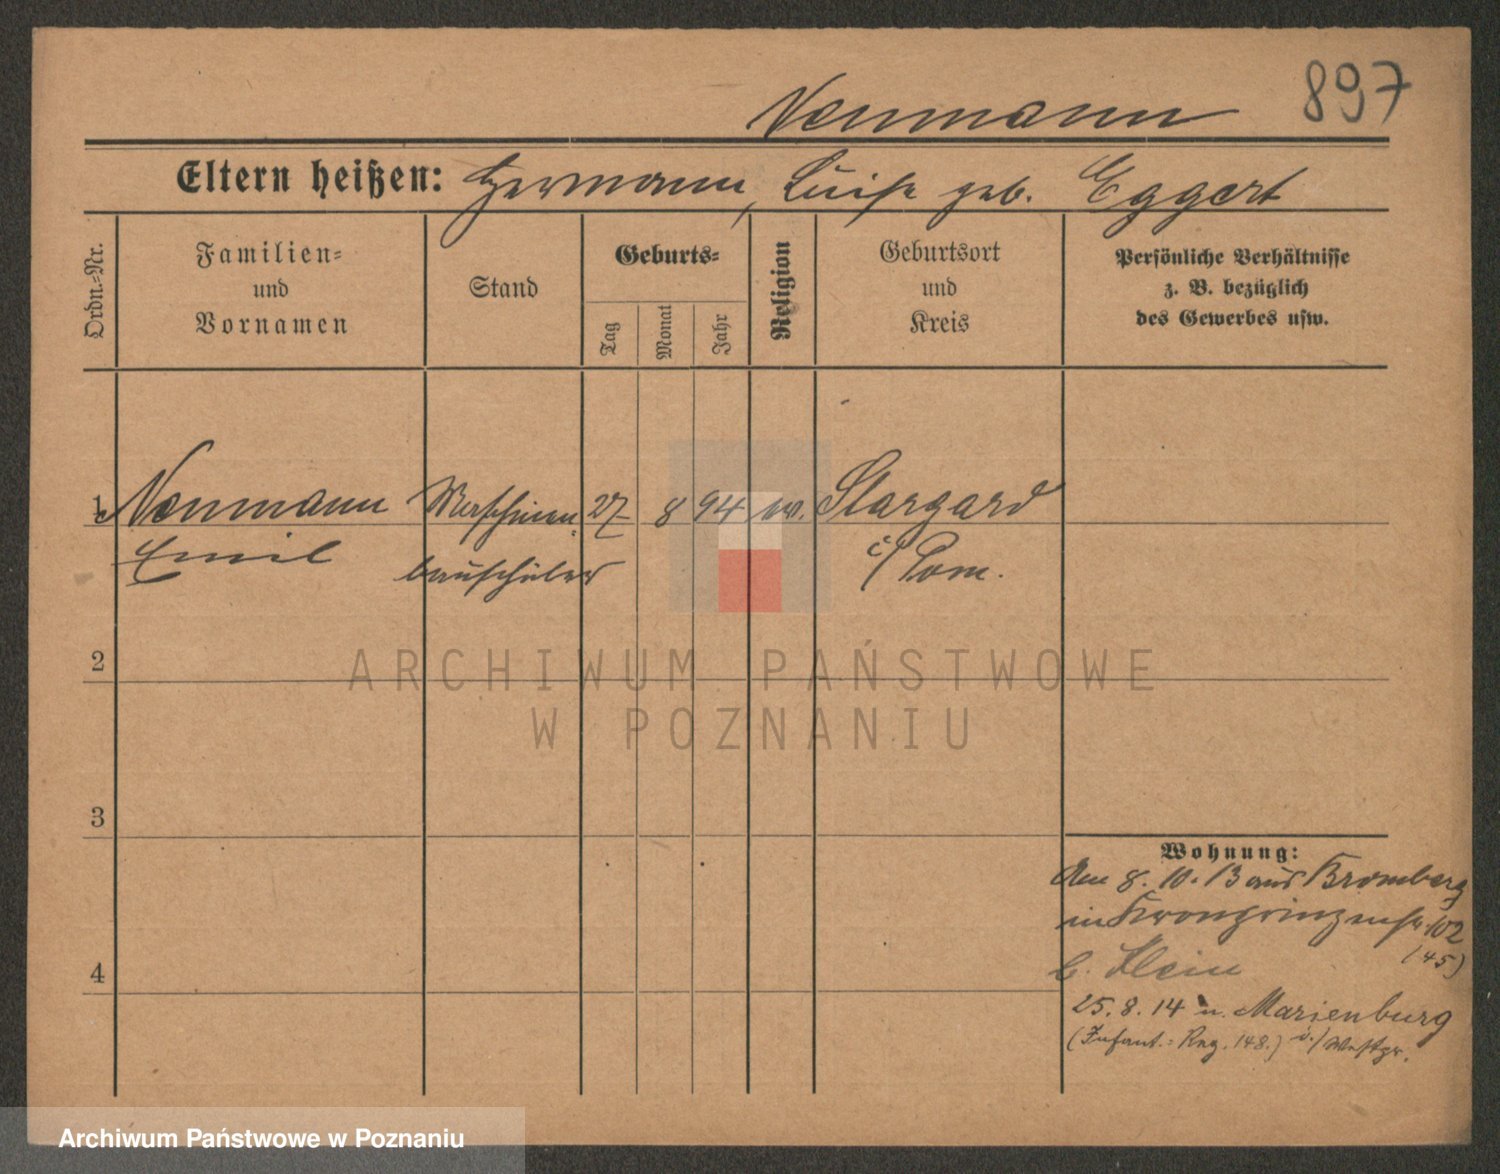 897
Neumann
Eltern heißen: Hermann, Luise geb. Eggert
Ordn.-Nr.
Familien-
und
Vornamen
Stand
Geburts-
Tag
Monat
Jahr
Religion
Geburtsort
und
Kreis
Persönliche Verhältnisse
z. B. bezüglich
des Gewerbes usw.
1 Neumann Maschinen- 27 8 94 ev. Stargard
Emil bauschüler i/Pom.
2
3
4
Wohnung:
Am 8. 10. 13 aus Bromberg
in Kronprinzenstr. 102
(45)
b. Klein
25. 8. 14 n. Marienburg
(Infant.-Reg. 148.) i./Westpr.
ARCHIWUM PAŃSTWOWE
W POZNANIU
Archiwum Państwowe w Poznaniu